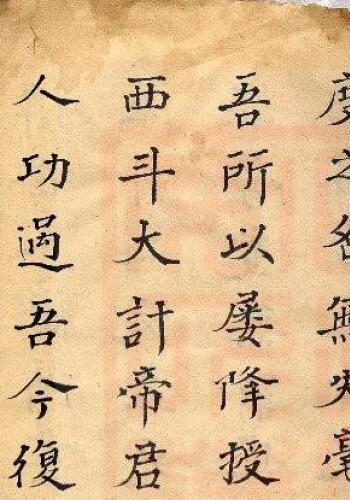 度之無毫
吾所以屢降授
西斗大計帝君
人功過吾今復